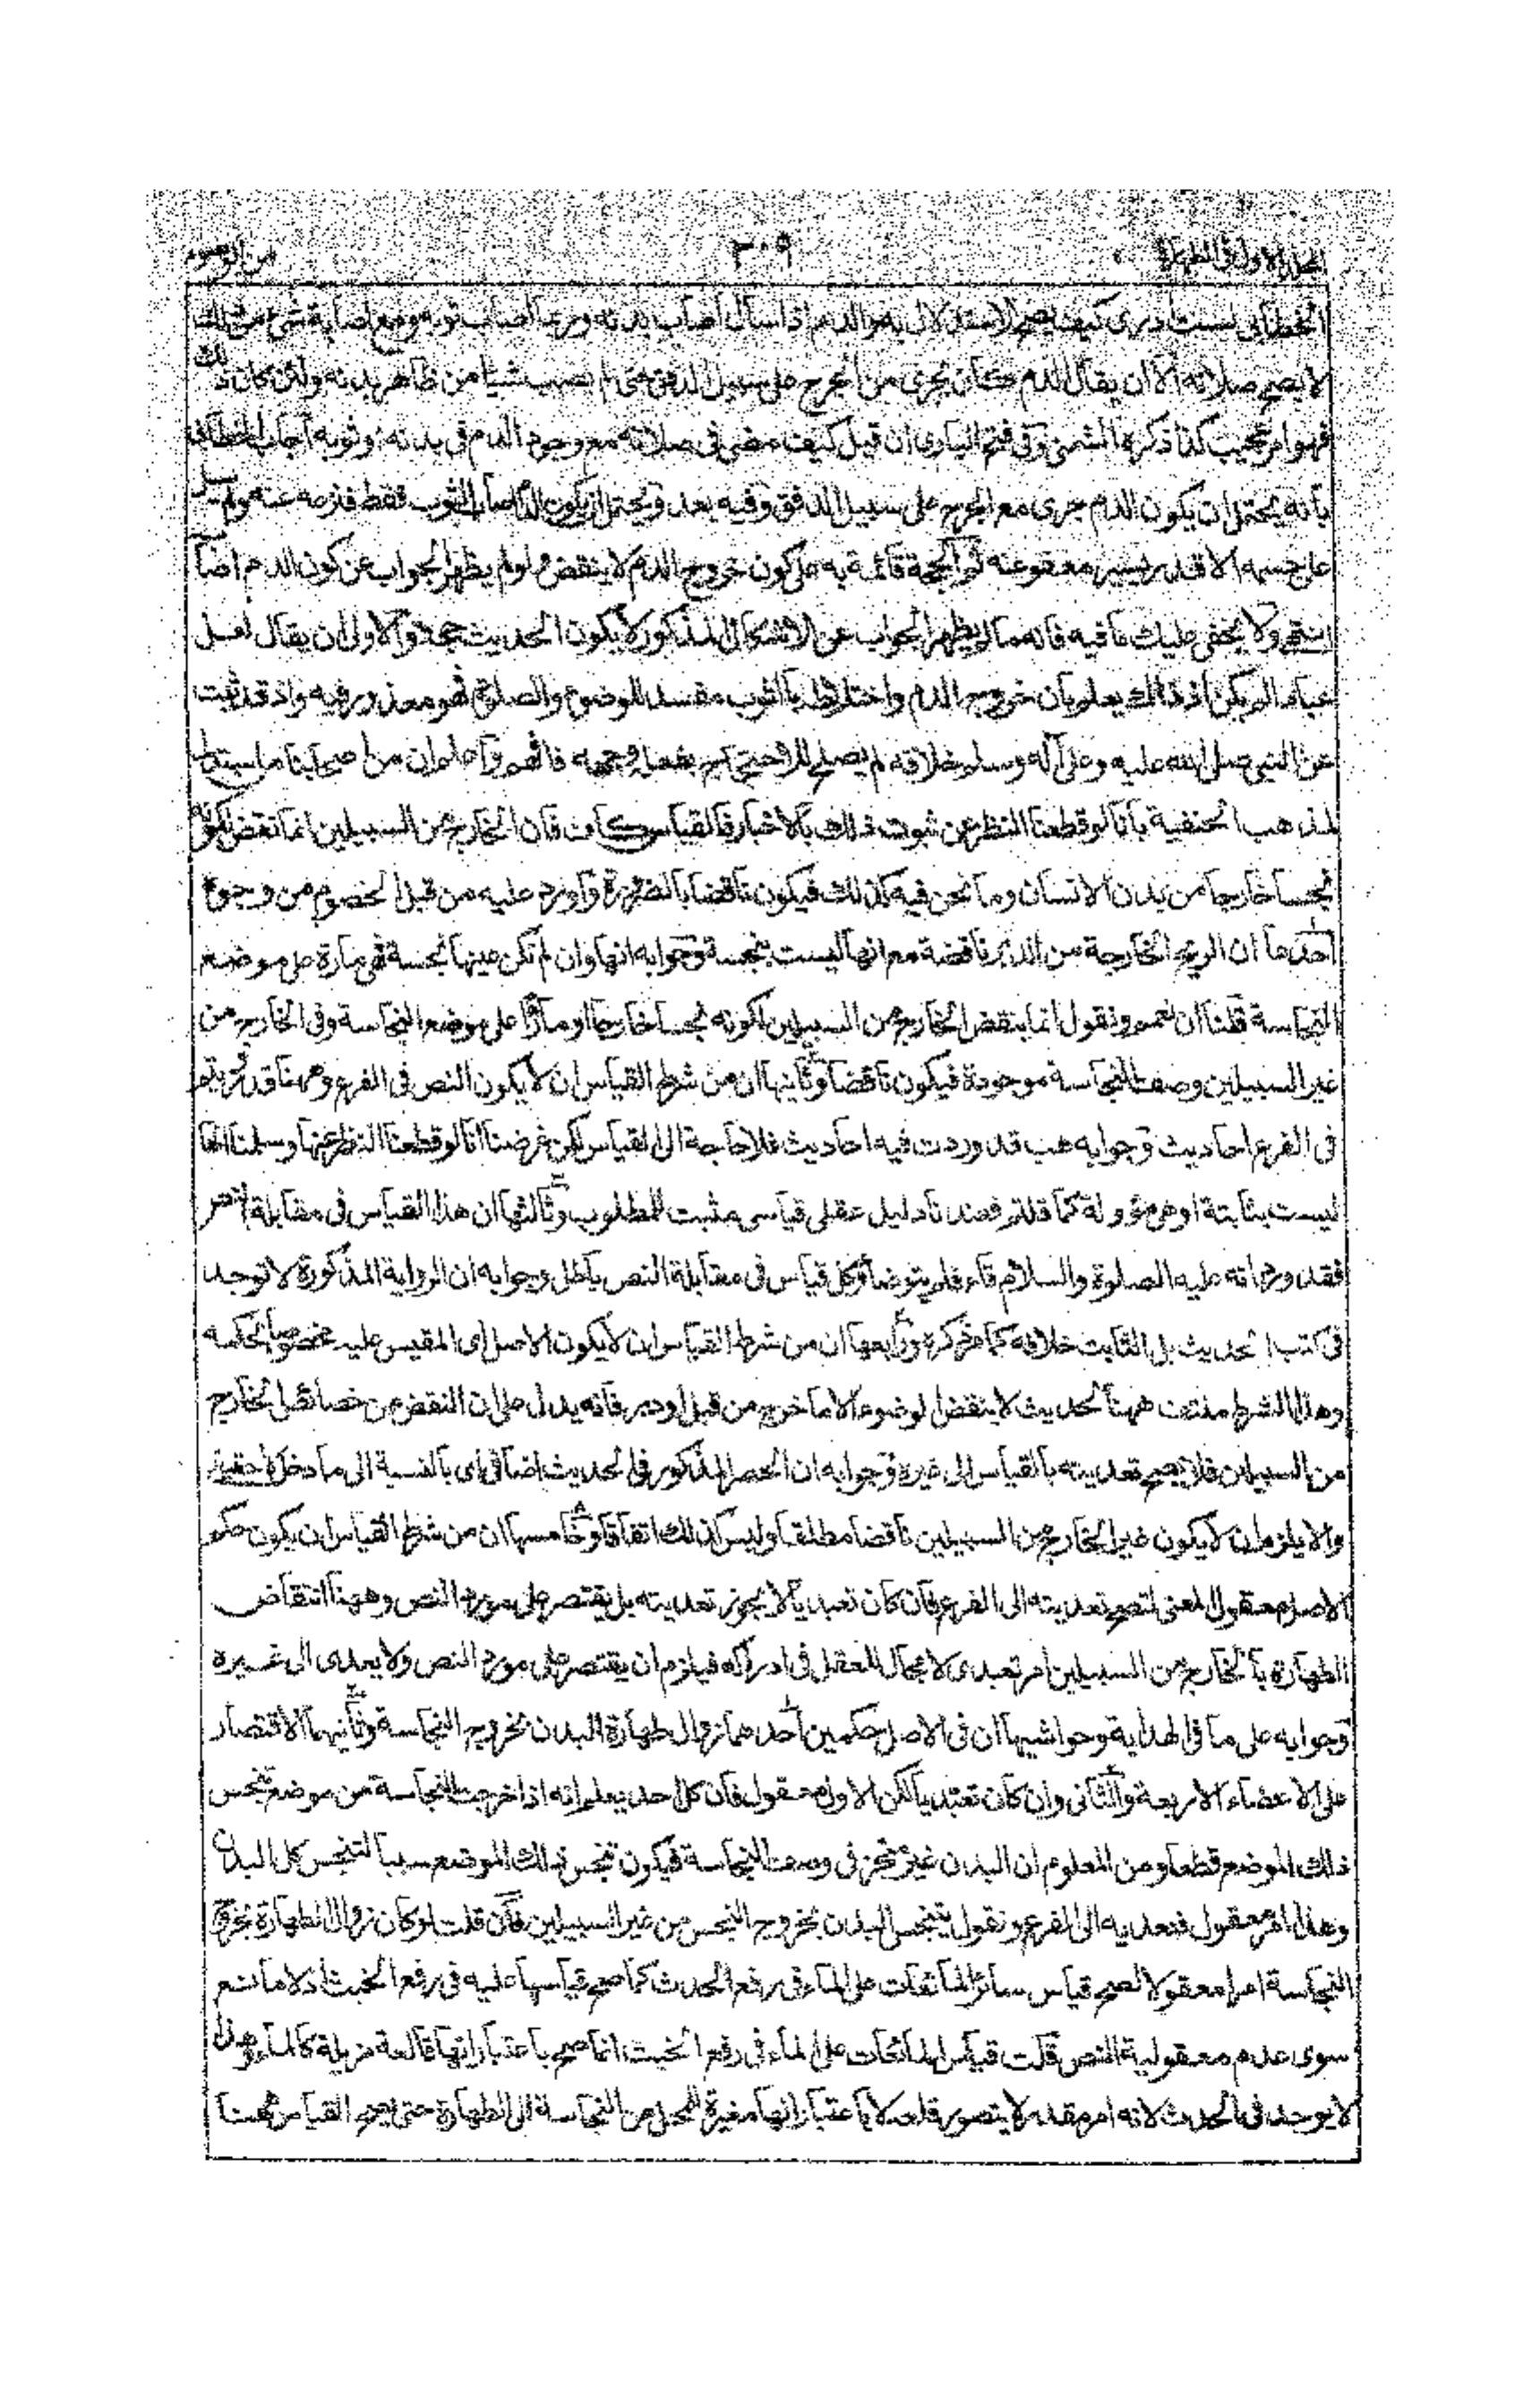 المجلد الاول فى الطهارة ٣٠٩ من الوضوء
الخطابى لست ادرى كيف يصح الاستدلال به والدم اذا سال اصاب بدنه وربما اصاب ثوبه ومع اصابة شئ من ذلك
لا يصح صلاته الا ان يقال الدم كان يجرى من الجرح على سبيل الدفق حتى لم يصب شيئا من ظاهر بدنه ولئن كان ذلك
فهو امر عجيب كذا ذكره الشمنى وفى فتح البارى ان قيل كيف مضى فى صلاته مع وجود الدم فى بدنه او ثوبه اجاب الخطابى
بانه يحتمل ان يكون الدم جرى مع الجرح على سبيل الدفق وفيه بعد ويحتمل ان يكون الدم اصاب الثوب فقط فنزعه عنه ولم يسل
على جسمه الا قدر يسير معفو عنه ثم الحجة قائمة به على كون خروج الدم لا ينقض ولو لم يظهر الجواب عن كون الدم اصابه
انتهى ولا يخفى عليك ما فيه فانه مما لم يظهر الجواب عن الاشكال المذكور لا يكون الحديث حجة والاولى ان يقال لعل
عبادا لم يكن اذ ذاك يعلم بان خروج الدم واختلاطه بالثوب مفسد للوضوء والصلوة فهو معذور فيه واذ قد ثبت
عن النبى صلى الله عليه وعلى آله وسلم خلافه لم يصلح للاحتجاج بفعله وجه فافهم واعلم ان من اصحابنا من استدل
لمذهب الحنفية بانا لو قطعنا النظر عن ثبوت ذلك بالاخبار فالقياس كاف فان الخارج من السبيلين انما نقض لكونه
نجسا خارجا من بدن الانسان وما نحن فيه كذلك فيكون ناقضا بالضرورة واورد عليه من قبل الخصوم من وجوه
احدها ان الريح الخارجة من الدبر ناقضة مع انها ليست بنجسة وجوابه انها وان لم تكن عينها نجسة فهى مارة على موضع
النجاسة قلنا ان نعمم ونقول انما ينقض الخارج من السبيلين لكونه نجسا خارجا او مارا على موضع النجاسة وفى الخارج من
غير السبيلين وصف النجاسة موجودة فيكون ناقضا وثانيها ان من شرط القياس ان لا يكون النص فى الفرع وههنا قد رويتم
فى الفرع احاديث وجوابه هب قد وردت فيه احاديث فلا حاجة الى القياس لكن غرضنا انا لو قطعنا النظر عنها وسلمنا انها
ليست بثابتة او هى مؤولة كما قلتم فعندنا دليل عقلى قياسى مثبت للمطلوب وثالثها ان هذا القياس فى مقابلة النص
فقد ورد انه عليه الصلوة والسلام قاء فلم يتوضأ وكل قياس فى مقابلة النص باطل وجوابه ان الرواية المذكورة لا توجد
فى كتب الحديث بل الثابت خلافه كما مر ذكره ورابعها ان من شرط القياس ان لا يكون الاصل اى المقيس عليه مخصوصا بحكمه
وهذا الشرط منتف ههنا لحديث لا ينقض الوضوء الا ما خرج من قبل او دبر فانه يدل على ان النقض من خصائص الخارج
من السبيلين فلا يصح تعديته بالقياس الى غيره وجوابه ان الحصر المذكور فى الحديث اضافى اى بالنسبة الى ما دخل لا حقيقى
والا يلزم ان لا يكون غير الخارج من السبيلين ناقضا مطلقا وليس كذلك اتفاقا وخامسها ان من شرط القياس ان يكون حكم
الاصل معقول المعنى لتصح تعديته الى الفرع فان كان تعبديا لا يجوز تعديته بل يقتصر على مورد النص وههنا انتقاض
الطهارة بالخارج من السبيلين امر تعبدى لا مجال للعقل فى ادراكه فيلزم ان يقتصر على مورد النص ولا يعدى الى غيره
وجوابه على ما فى الهداية وحواشيها ان فى الاصل حكمين احدهما زوال طهارة البدن بخروج النجاسة وثانيهما الاقتصار
على الاعضاء الاربعة والثانى وان كان تعبديا لكن الاول معقول فان كل احد يعلم انه اذا خرجت النجاسة من موضع تنجس
ذلك الموضع قطعا ومن المعلوم ان البدن غير متجز فى وصف النجاسة فيكون تنجس ذلك الموضع سببا لتنجس كل البدن
وهذا امر معقول فنعديه الى الفرع ونقول يتنجس البدن بخروج النجس من غير السبيلين فان قلت لو كان زوال الطهارة بخروج
النجاسة امرا معقولا لصح قياس سائر المائعات على الماء فى رفع الحدث كما صح قياسها عليه فى رفع الخبث اذ لا مانع
سوى عدم معقولية النص قلت قياس المائعات على الماء فى رفع الخبث انما صح باعتبار انها قالعة مزيلة كالماء وهذا
لا يوجد فى الحدث لانه امر مقدر لا يتصور قلعه لا باعتبار انها مغيرة للمحل من النجاسة الى الطهارة حتى يصح القياس ههنا